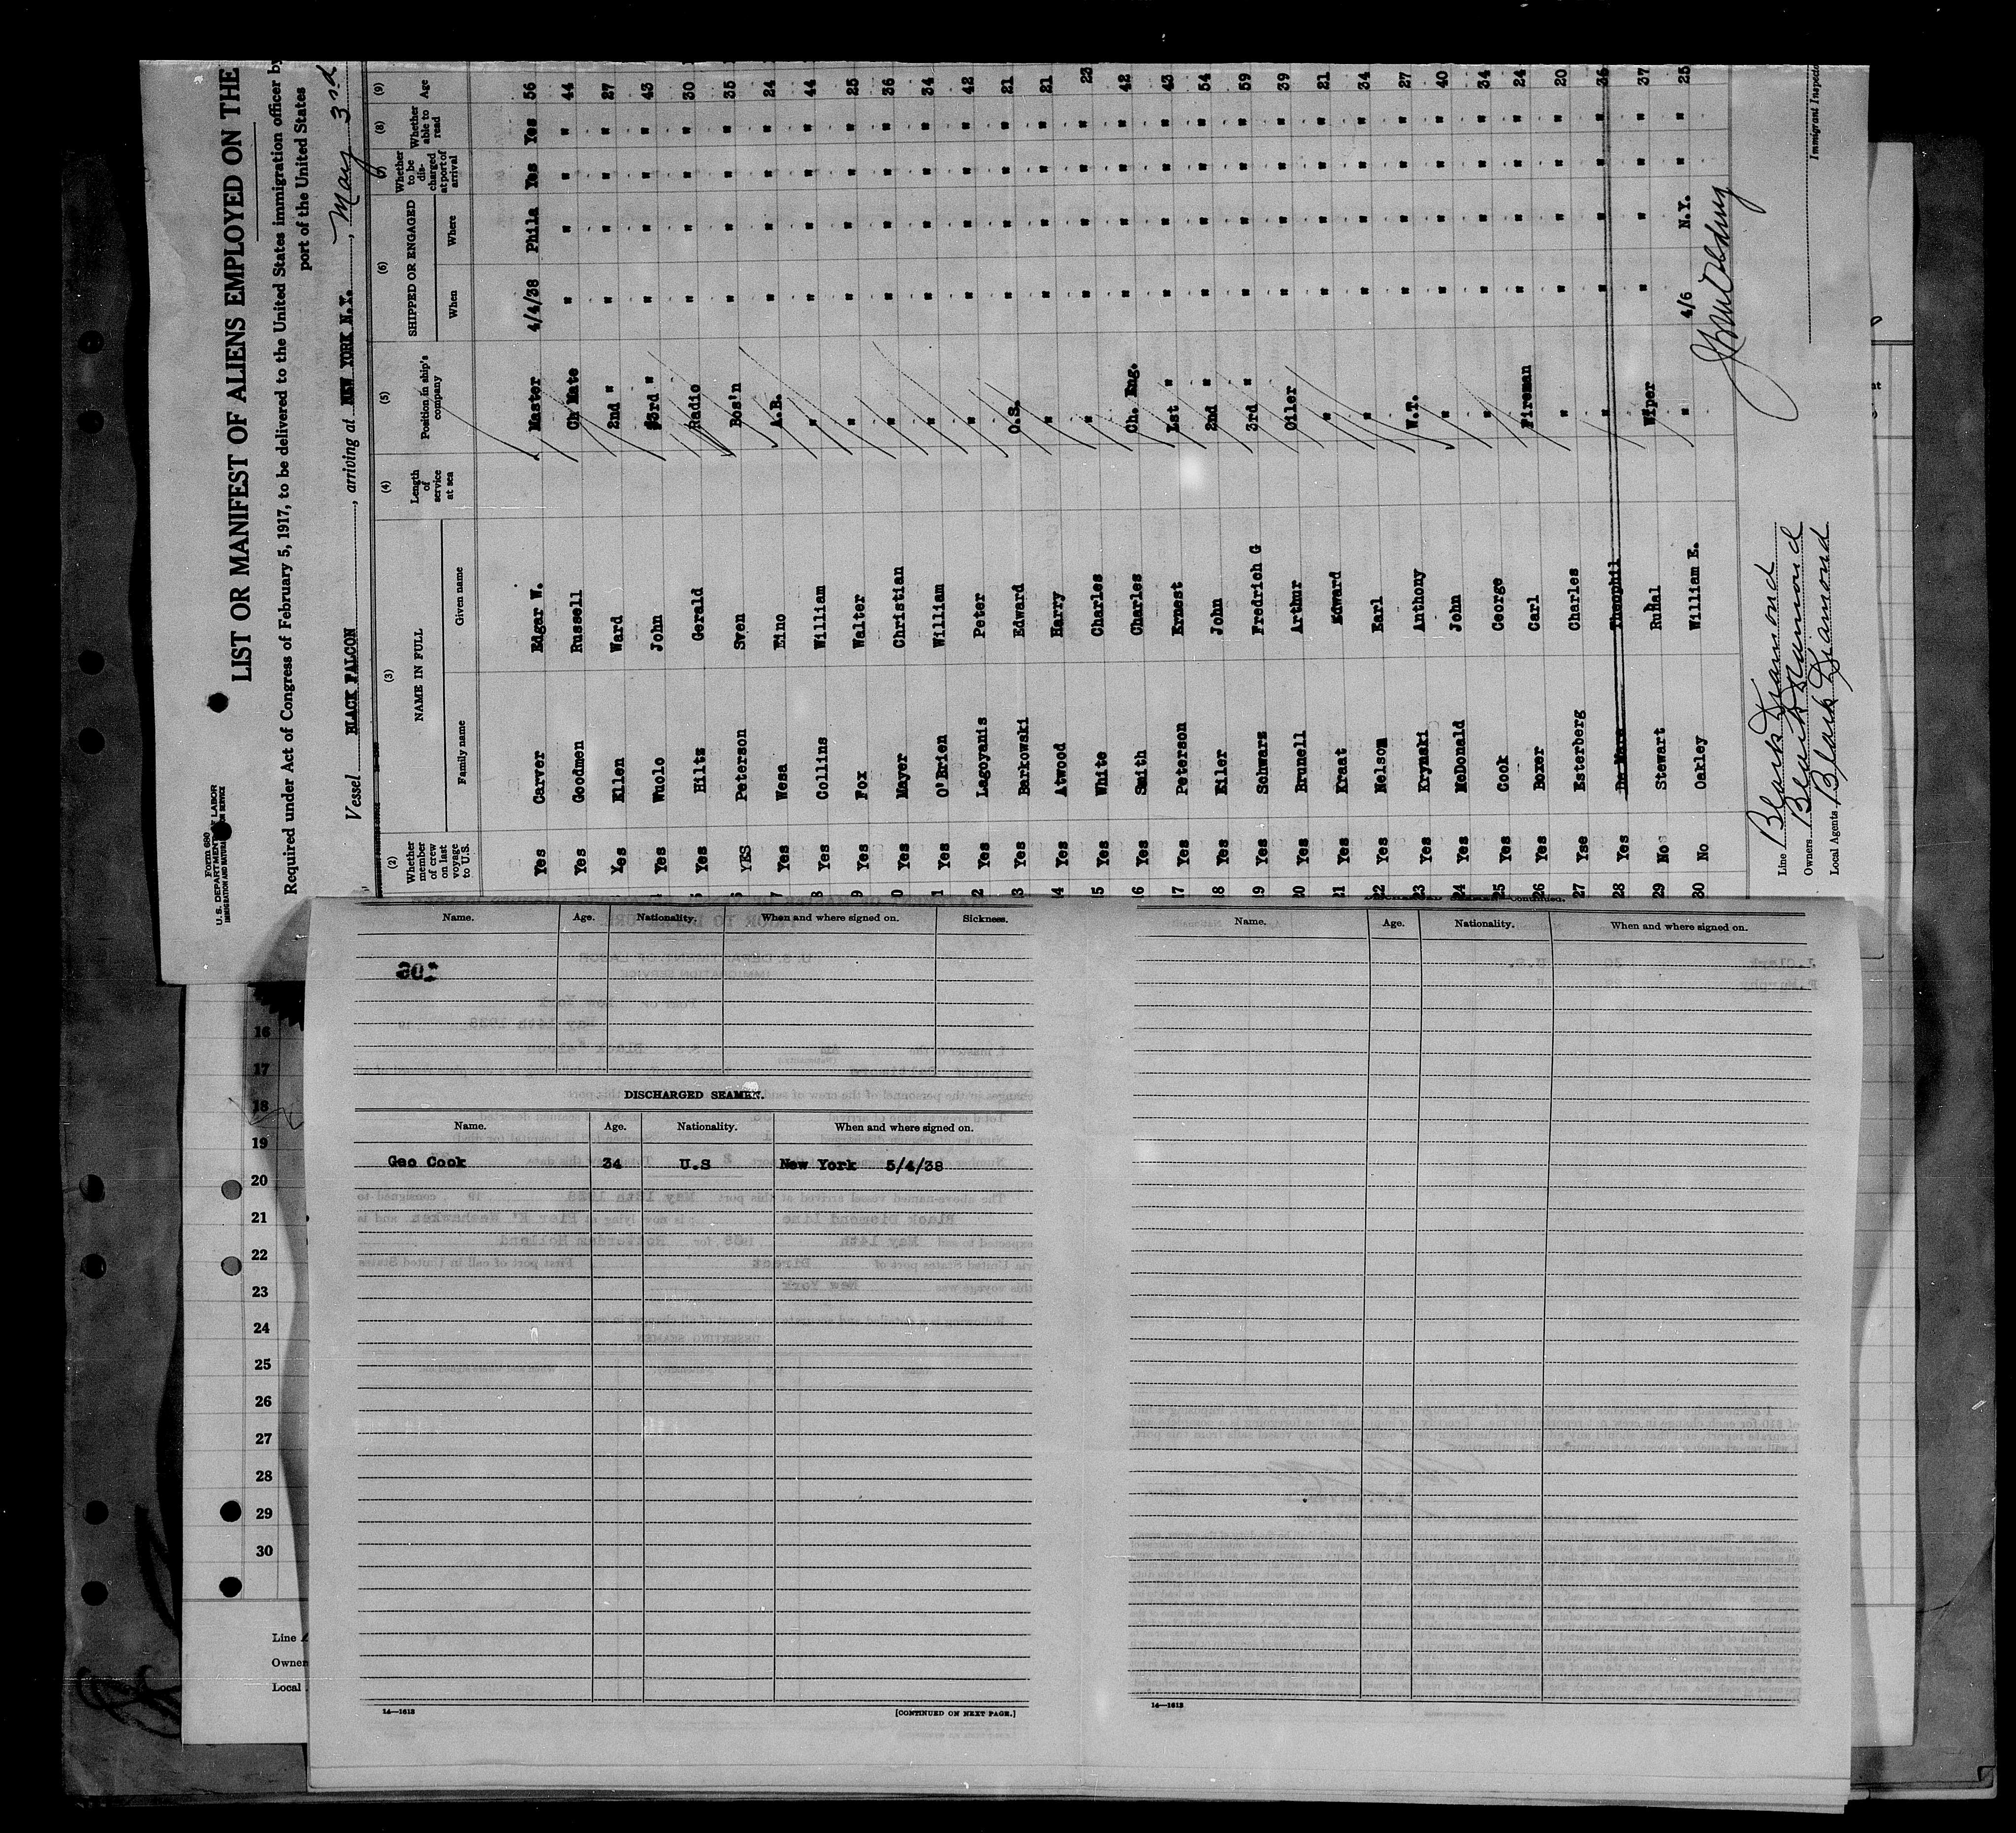 Form 680
U.S. DEPARTMENT OF LABOR
IMMIGRATION AND NATURALIZATION SERVICE
LIST OR MANIFEST OF ALIENS EMPLOYED ON THE
Required under Act of Congress of February 5, 1917, to be delivered to the United States immigration officer by
port of the United States
Vessel BLACK FALCON, arriving at NEW YORK N.Y., May 3rd
(2) (3) (4) (5) (6) (7) (8) (9)
Whether member of crew on last voyage to U.S. NAME IN FULL Family name Given name Length of service at sea Position in ship's company SHIPPED OR ENGAGED When Where Whether to be discharged at port of arrival Whether able to read Age
Yes Carver Edgar W. Master 4/4/38 Phila Yes Yes 56
Yes Goodmen Russell Ch Mate " " " " 44
Yes Ellen Ward 2nd " " " " " 27
Yes Wuolo John 3rd " " " " " 43
Yes Hiltz Gerald Radio " " " " 30
YES Peterson Sven Bos'n " " " " 35
7 Yes Wesa Eino A.B. " " " " 24
8 Yes Collins William " " " " " 44
9 Yes Fox Walter " " " " " 25
0 Yes Mayer Christian " " " " " 36
1 Yes O'Brien William " " " " " 34
2 Yes Lagoyanis Peter " " " " " 42
3 Yes Barkowski Edward O.S. " " " " 21
14 Yes Atwood Harry " " " " " 21
15 Yes White Charles " " " " " 23
16 Yes Smith Charles Ch. Eng. " " " " 42
17 Yes Peterson Ernest 1st " " " " " 43
18 Yes Eiler John 2nd " " " " " 54
19 Yes Schwarz Fredrich G 3rd " " " " " 59
20 Yes Brunell Arthur Oiler " " " " 39
21 Yes Kraat Edward " " " " " 21
22 Yes Nelson Earl " " " " " 34
23 Yes Krynski Anthony W.T. " " " " 27
24 Yes McDonald John " " " " " 40
25 Yes Cook George " " " " " 34
26 Yes Boxer Carl Fireman " " " " 24
27 Yse Esterberg Charles " " " " " 20
28 Yes De Mars Theophil " " " " " 36
29 No Stewart Runal Wiper " " " " 37
30 No Oakley William E. " 4/6 N.Y. " " 25
Line Black Diamond
Owners Black Diamond
Local Agents Black Diamond
Immigrant Inspecto
DISCHARGED SEAMEN—Continued.
Name. Age. Nationality. When and where signed on. Sickness.
Name. Age. Nationality. When and where signed on.
DISCHARGED SEAMEN.
Name. Age. Nationality. When and where signed on.
Geo Cook 34 U.S New York 5/4/38
14—1613 [CONTINUED ON NEXT PAGE.]
14—1613
16
17
18
19
20
21
22
23
24
25
26
27
28
29
30
Line
Owner
Local